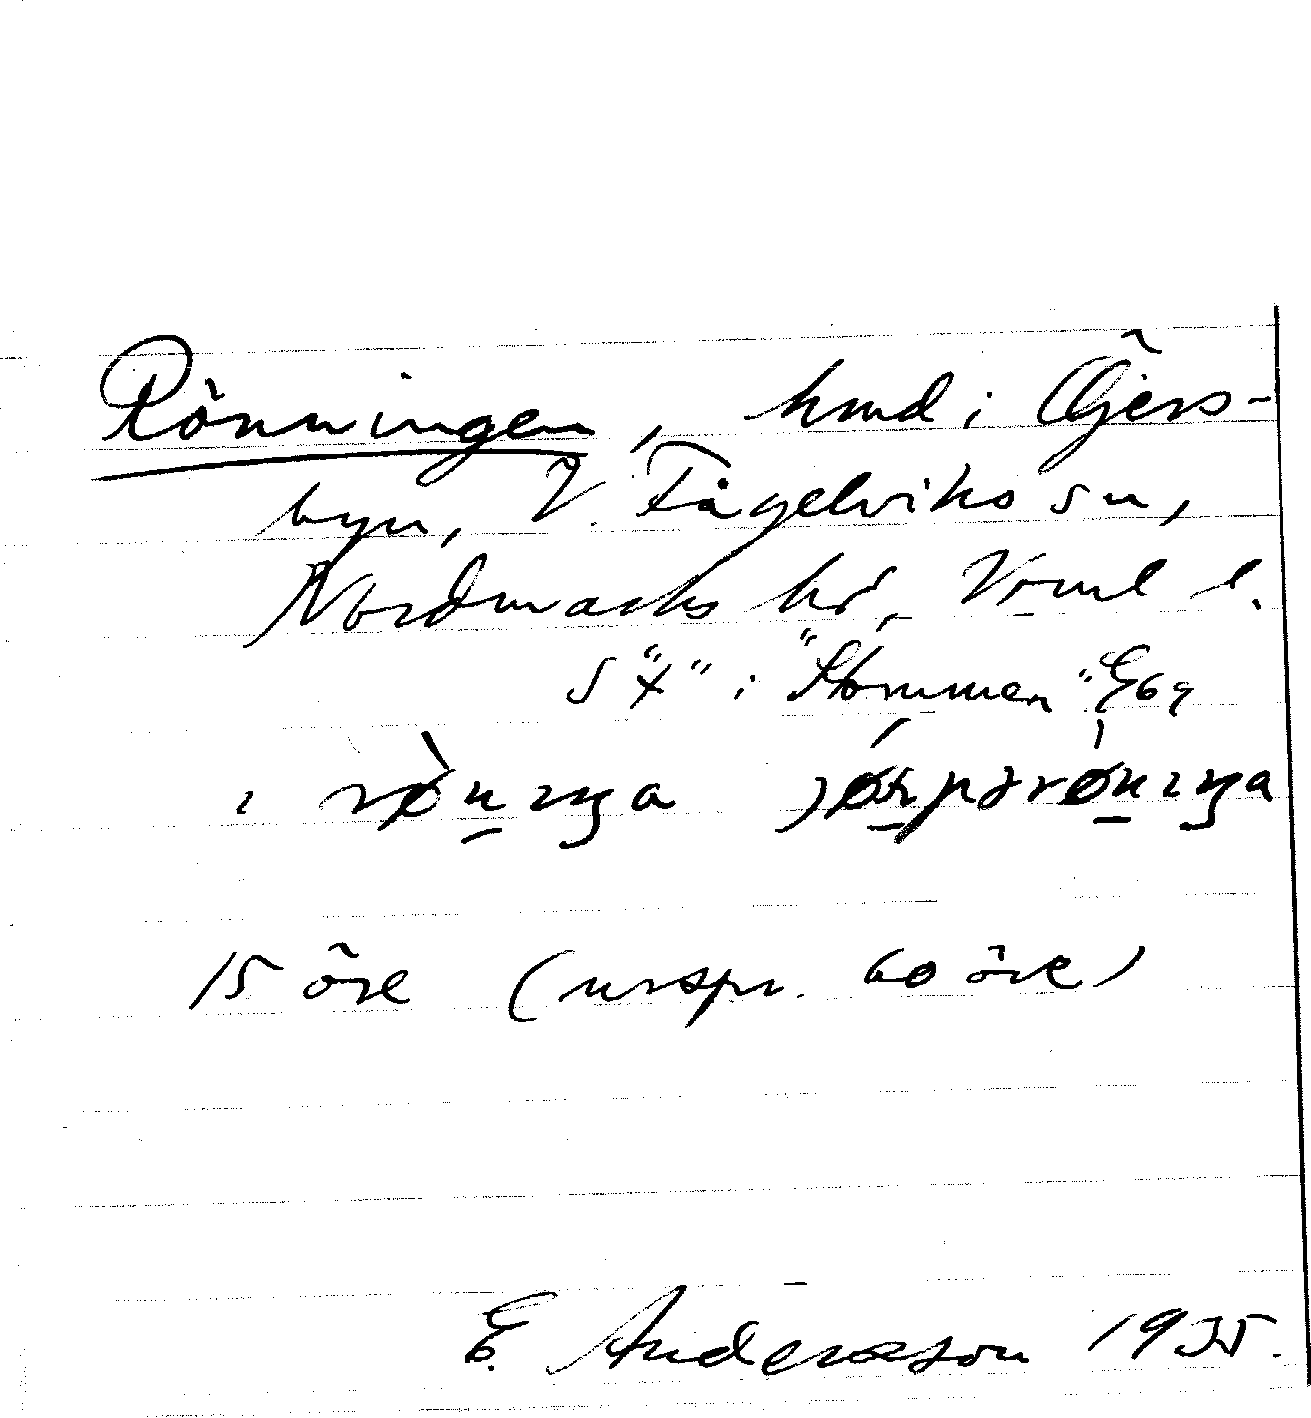 Rönningen, hmd i Öjers-
byn, V. Fågelviks sn,
Nordmarks hd, Värml l.
S "x" i "Stommen" Egg
ı røn̠ıŋa jørpərøn̠ıŋa
15 öre (urspr. 60 öre)
E. Andersson 1935.